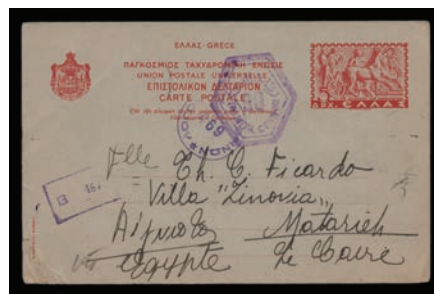 ΕΛΛΑΣ-GRECE
ΠΑΓΚΟΣΜΙΟΣ ΤΑΧΥΔΡΟΜΙΚΗ ΕΝΩΣΙΣ
UNION POSTALE UNIVERSELLE
ΕΠΙΣΤΟΛΙΚΟΝ ΔΕΛΤΑΡΙΟΝ
CARTE POSTALE
5
ΔΡΧ. ΕΛΛΑΣ
69
Mlle Th. C. Ficardo
Villa "Zinovia"
B
Αίγυπτος Matarieh
Egypte Le Caire